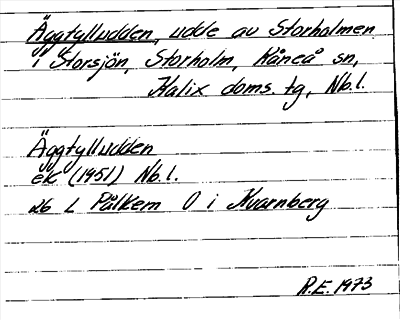 Äggtylludden, udde av Storholmen
i Storsjön, Storholm, Råneå sn,
Kalix doms. tg, Nb.l.
Äggtylludden
ek (1951) Nb.l.
ab L Pålkem O i Kvarnberg
R.E. 1973